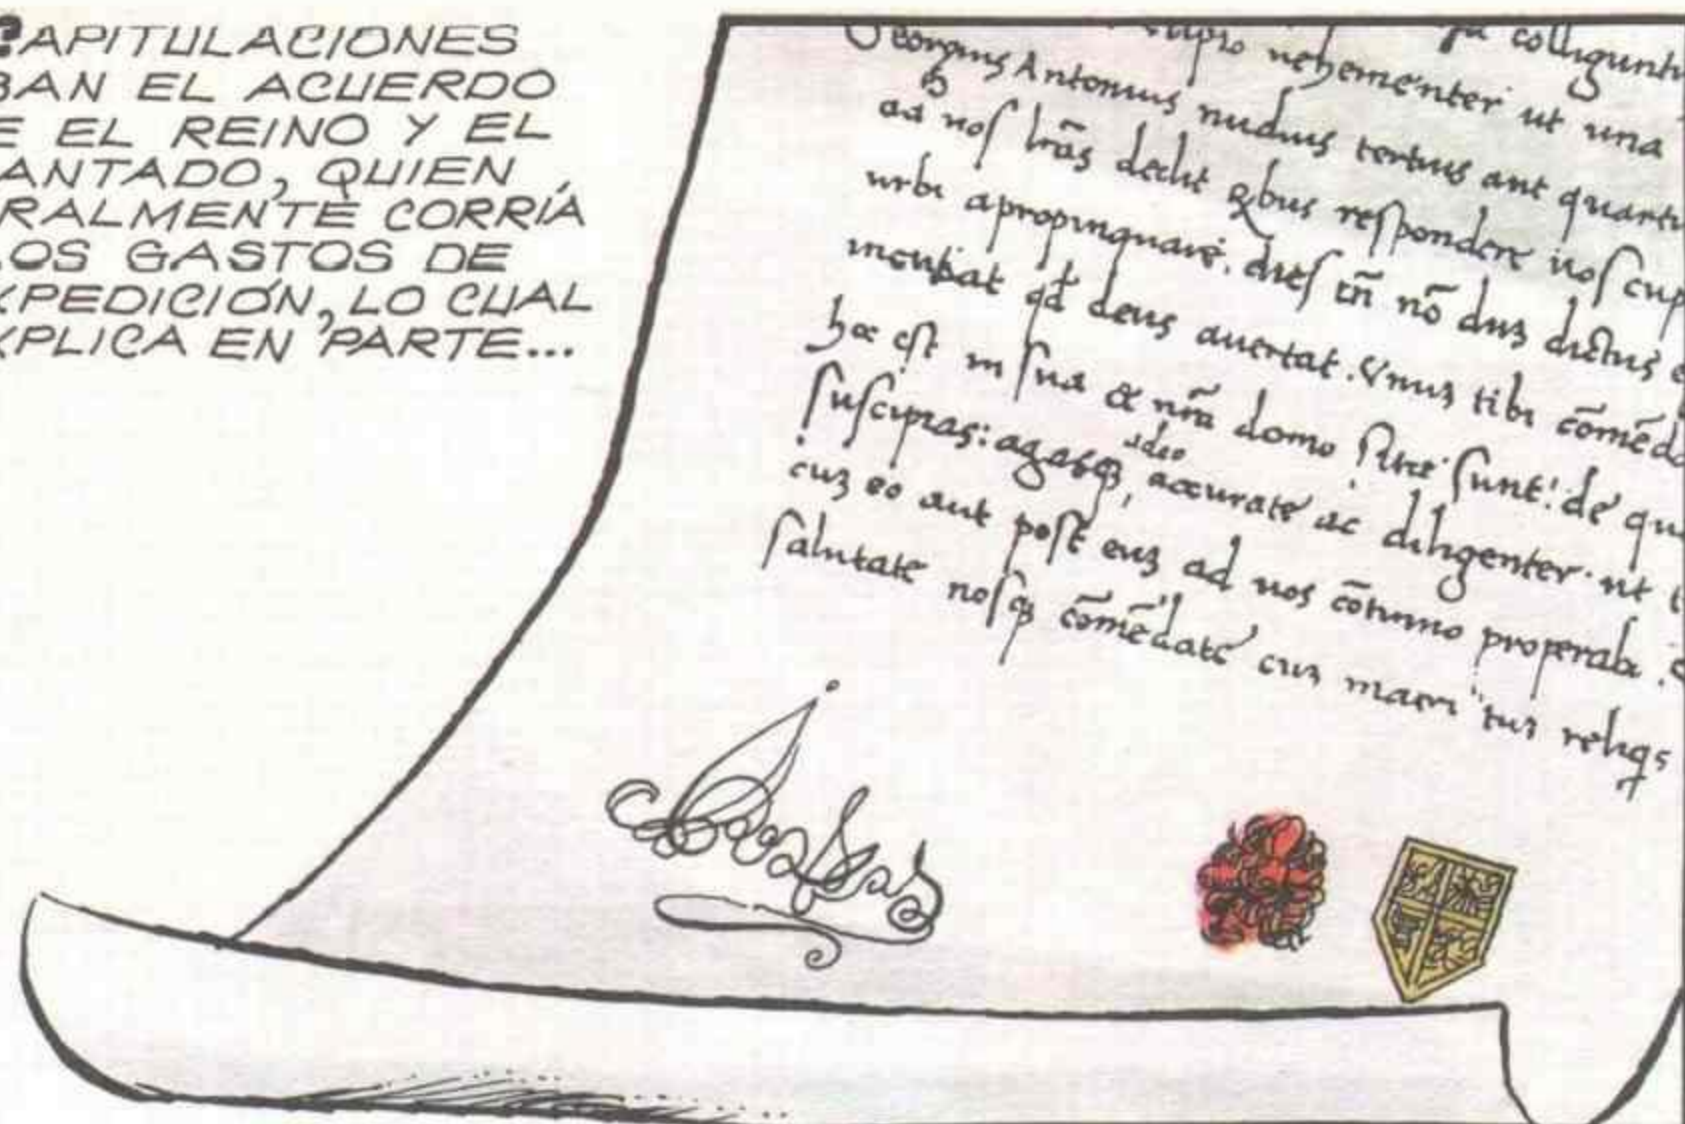 CAPITULACIONES
BAN EL ACUERDO
E EL REINO Y EL
ANTADO, QUIEN
RALMENTE CORRÍA
LOS GASTOS DE
XPEDICIÓN, LO CUAL
XPLICA EN PARTE...
vehementer ut una
Georgius Antonius nudius tertius ant quartu
ad nos lrãs dedit qbus respondere nos cup
urbi apropinquare. dies tñ nõ duz dictus e
incubat qd deus avertat. Unuz tibi cõmẽdo
hoc est in sua & nrã domo site sunt: de qu
suscipias: agasqz adeo accurate ac diligenter ut t
cuz eo aut post euz ad nos cõtinuo properabi
salutate nosqz cõmẽdate cuz matri tuz reliqs